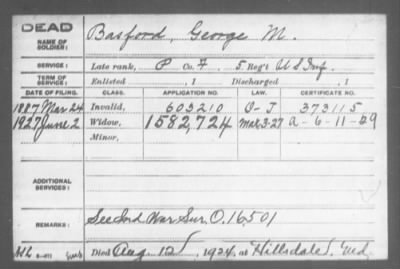 DEAD
NAME OF SOLDIER: Basford, George M.
SERVICE: Late rank, P Co. F 5 Reg't U S Inf.
TERM OF SERVICE: Enlisted , 1 Discharged , 1
DATE OF FILING. CLASS. APPLICATION NO. LAW. CERTIFICATE NO.
1887 Mar 24 Invalid, 603210 373115
1927 June 2 Widow, 1582,724 Mar 3-27 a-6-11-29
Minor,
ADDITIONAL SERVICES:
REMARKS: See Ind War Sur. O. 16,501
Died Aug 12, 1924, at Hillsdale, Ind.